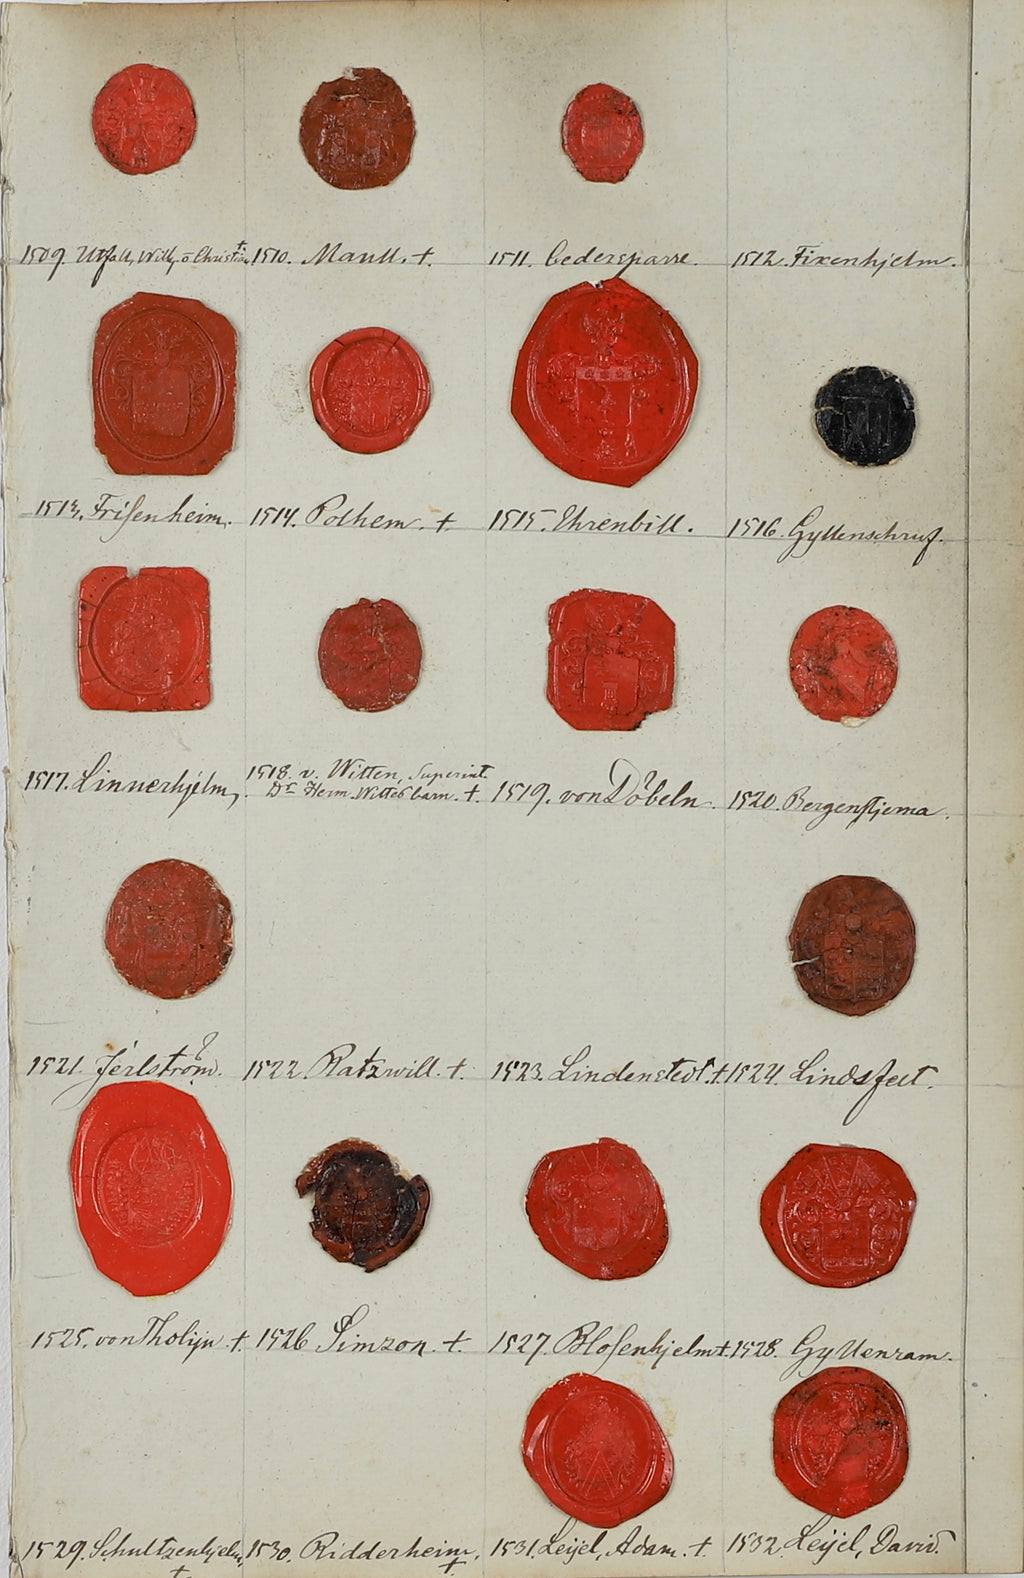 1509. Utfall, Will, o Christian † 1510. Maull. † 1511. Cedersparre. 1512. Fixenhjelm.
1513. Frisenheim. 1514. Polhem. † 1515. Ehrenbill. 1516. Gyllenschruf.
1517. Linnerhjelm. 1518. v. Witten, Superint.
Dr Herm. Wittes barn. † 1519. von Döbeln. 1520. Bergenstjerna.
1521. Jerlström. 1522. Ratzwill. † 1523. Lindenstedt. † 1524. Lindsfelt.
1525. von Tholijn. † 1526 Simzon. † 1527. Blosenhjelm † 1528. Gyllenram.
1529. Schultzenhjelm, † 1530. Ridderheim. † 1531. Leijel, Adam. † 1532. Leijel, David.